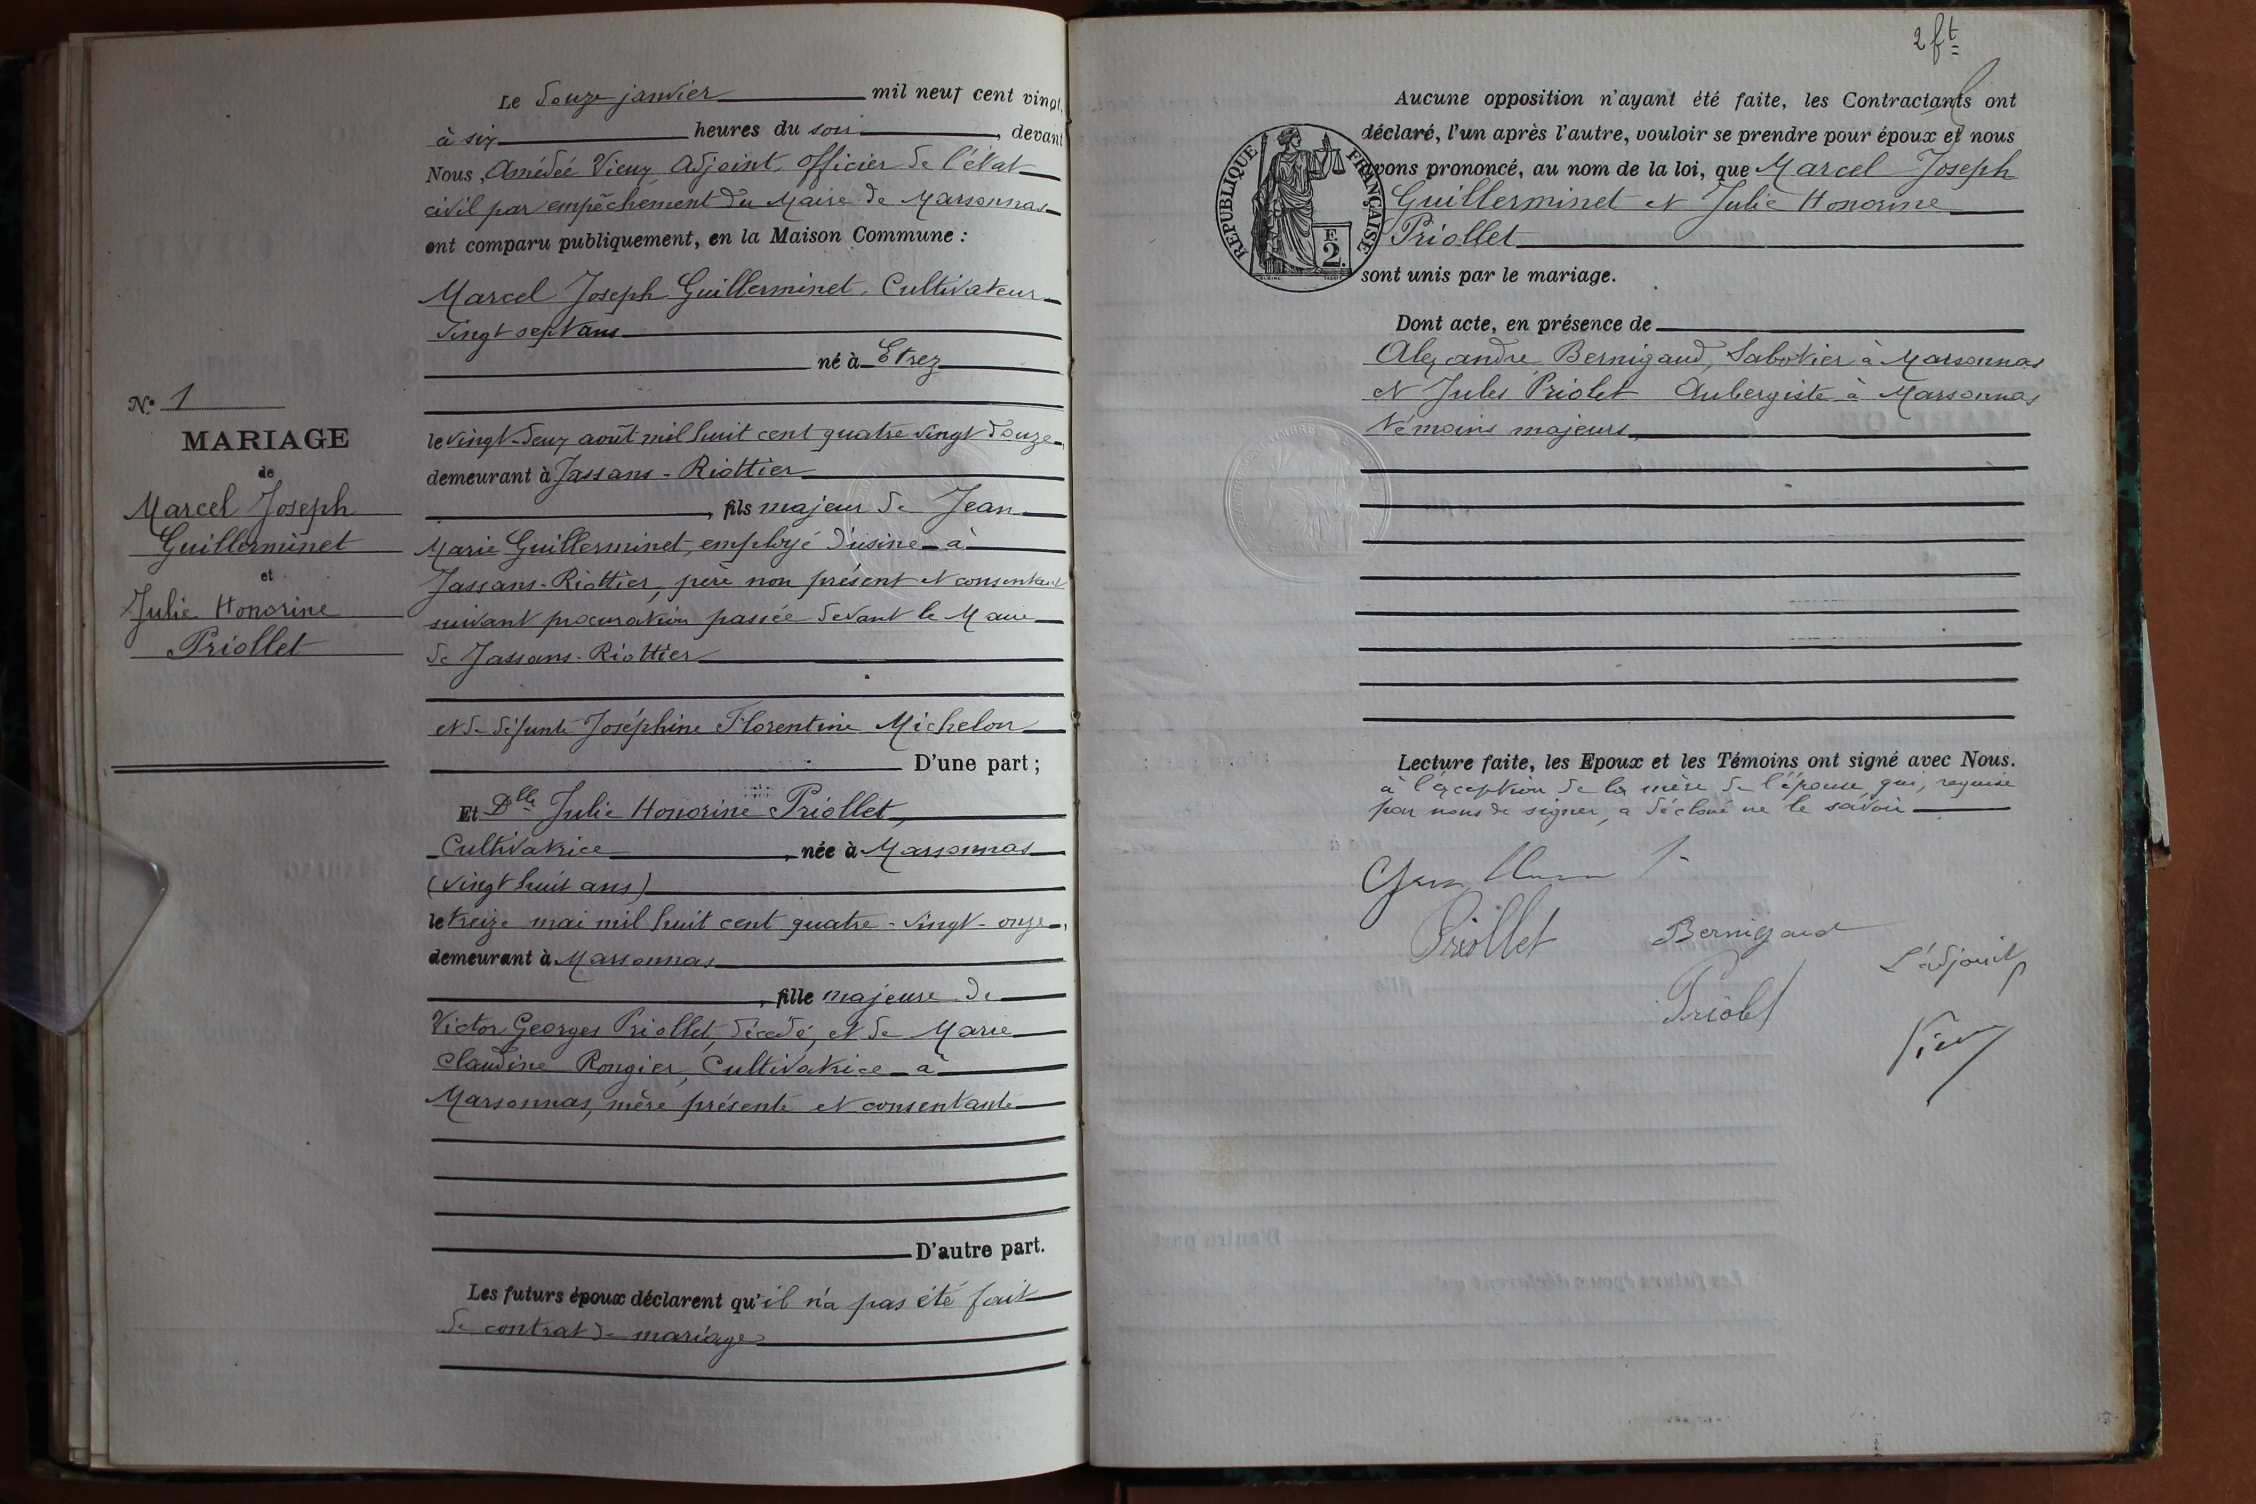 N.° 1
MARIAGE
de
Marcel Joseph
Guillerminet
et
Julie Honorine
Priollet
Le douze janvier mil neuf cent vingt,
à six heures du soir, devant
Nous, Amédée Vieux, Adjoint, officier de l'état
civil par empêchement du Maire de Marsonnas
ont comparu publiquement, en la Maison Commune :
Marcel Joseph Guillerminet, Cultivateur
vingt sept ans
né à Etrez
le vingt-deux août mil huit cent quatre vingt douze,
demeurant à Jassans-Riottier
, fils majeur de Jean
Marie Guillerminet, employé d'usine à
Jassans-Riottier, père non présent et consentant
suivant procuration passée devant le Maire
de Jassans-Riottier
et de défunte Joséphine Florentine Michelon
D'une part ;
Et Dlle Julie Honorine Priollet,
Cultivatrice, née à Marsonnas
(vingt huit ans)
le treize mai mil huit cent quatre-vingt-onze,
demeurant à Marsonnas
, fille majeure de
Victor Georges Priollet, décédé, et de Marie
Claudine Rongier, Cultivatrice à
Marsonnas, mère présente et consentante
D'autre part.
Les futurs époux déclarent qu'il n'a pas été fait
de contrat de mariage
2 ft
Aucune opposition n'ayant été faite, les Contractants ont
déclaré, l'un après l'autre, vouloir se prendre pour époux et nous
avons prononcé, au nom de la loi, que Marcel Joseph
Guillerminet et Julie Honorine
Priollet
sont unis par le mariage.
RÉPUBLIQUE FRANÇAISE
F.
2.
Dont acte, en présence de
Alexandre Bernigaud, Sabotier à Marsonnas
et Jules Priolet Aubergiste à Marsonnas
témoins majeurs
Lecture faite, les Epoux et les Témoins ont signé avec Nous.
à l'exception de la mère de l'épouse qui, requise
par nous de signer, a déclaré ne le savoir
Priollet
Bernigaud
L'adjoint
Priolet
Vieux